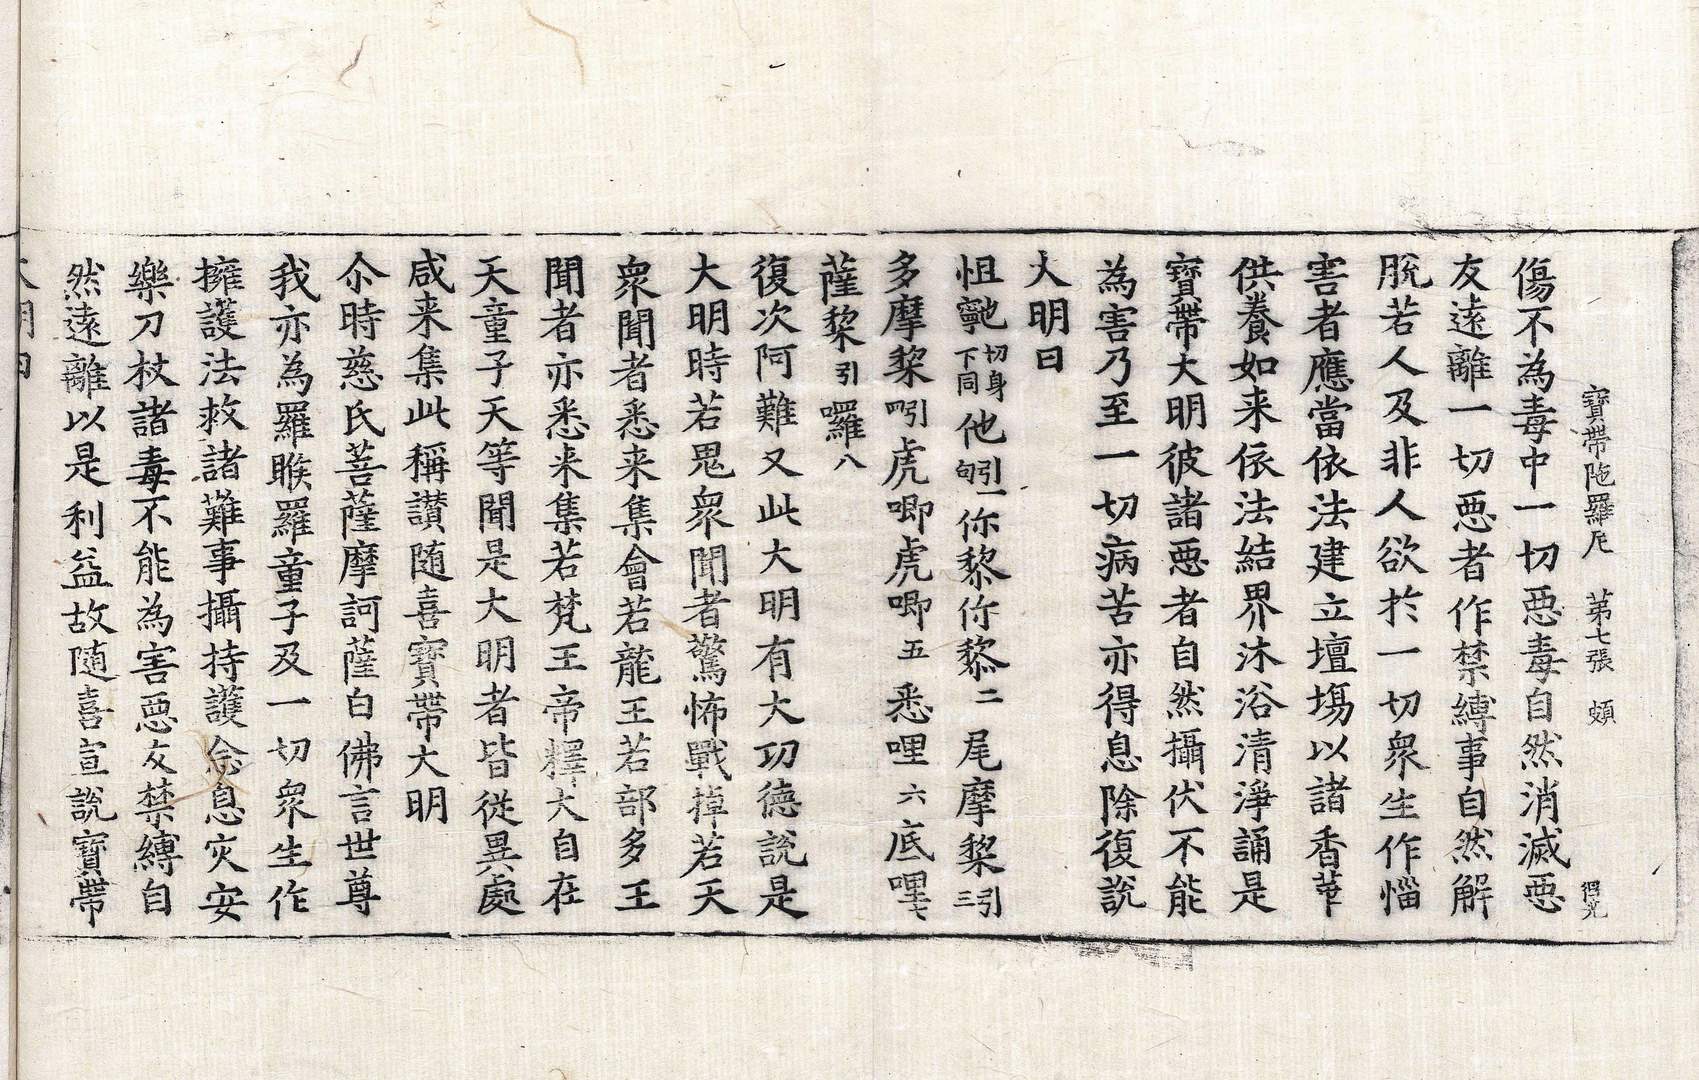 寶帶陁羅尼 第七張 頗 得光
傷不為毒中一切惡毒自然消滅惡
友遠離一切惡者作禁縛事自然解
脫若人及非人欲於一切衆生作惱
害者應當依法建立壇塲以諸香花
供養如来依法結界沐浴清淨誦是
寶帶大明彼諸惡者自然攝伏不能
為害乃至一切病苦亦得息除復說
大明曰
怛寧也切身下同他引一句你黎你黎二尾摩黎引三
多摩黎引四虎唧虎唧五悉哩六底哩七
薩黎引囉八
復次阿難又此大明有大功德說是
大明時若鬼衆聞者驚怖戰掉若天
衆聞者悉来集會若龍王若部多王
聞者亦悉来集若梵王帝釋大自在
天童子天等聞是大明者皆從異處
咸来集此稱讃随喜寶帶大明
尒時慈氏菩薩摩訶薩白佛言世尊
我亦為羅睺羅童子及一切衆生作
擁護法救諸難事攝持護念息灾安
樂刀杖諸毒不能為害惡友禁縛自
然遠離以是利益故随喜宣說寶帶
大明曰